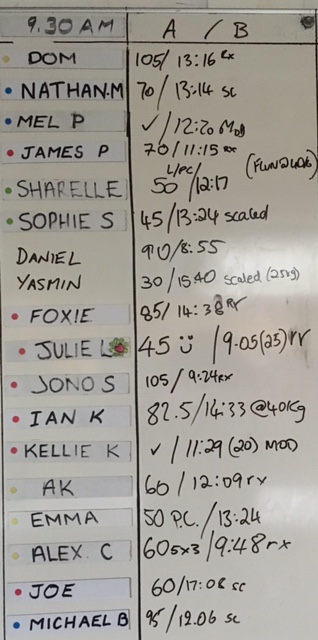 9.30 AM A / B
DOM 105 / 13:16 Rx
NATHAN.M 70 / 13:14 sc
MEL P ✓ / 12:20 MOD
JAMES P 70 / 11:15 rx
SHARELLE 50 L/PC / 12:17
SOPHIE S 45 / 13:24 scaled
DANIEL 90 / 8:55
YASMIN 30 / 15:40 scaled
FOXIE 85 / 14:38
JULIE L 45 / 9:05 (25) rr
JONO S 105 / 9:24 rx
IAN K 82.5 / 14:33 @40kg
KELLIE K ✓ / 11:29 (20) MOD
AK 60 / 12:09 rx
EMMA 50 P.C. / 13:24
ALEX. C 60 5x3 / 9:48 rx
JOE 60 / 17:08 sc
MICHAEL B 95 / 12.06 sc